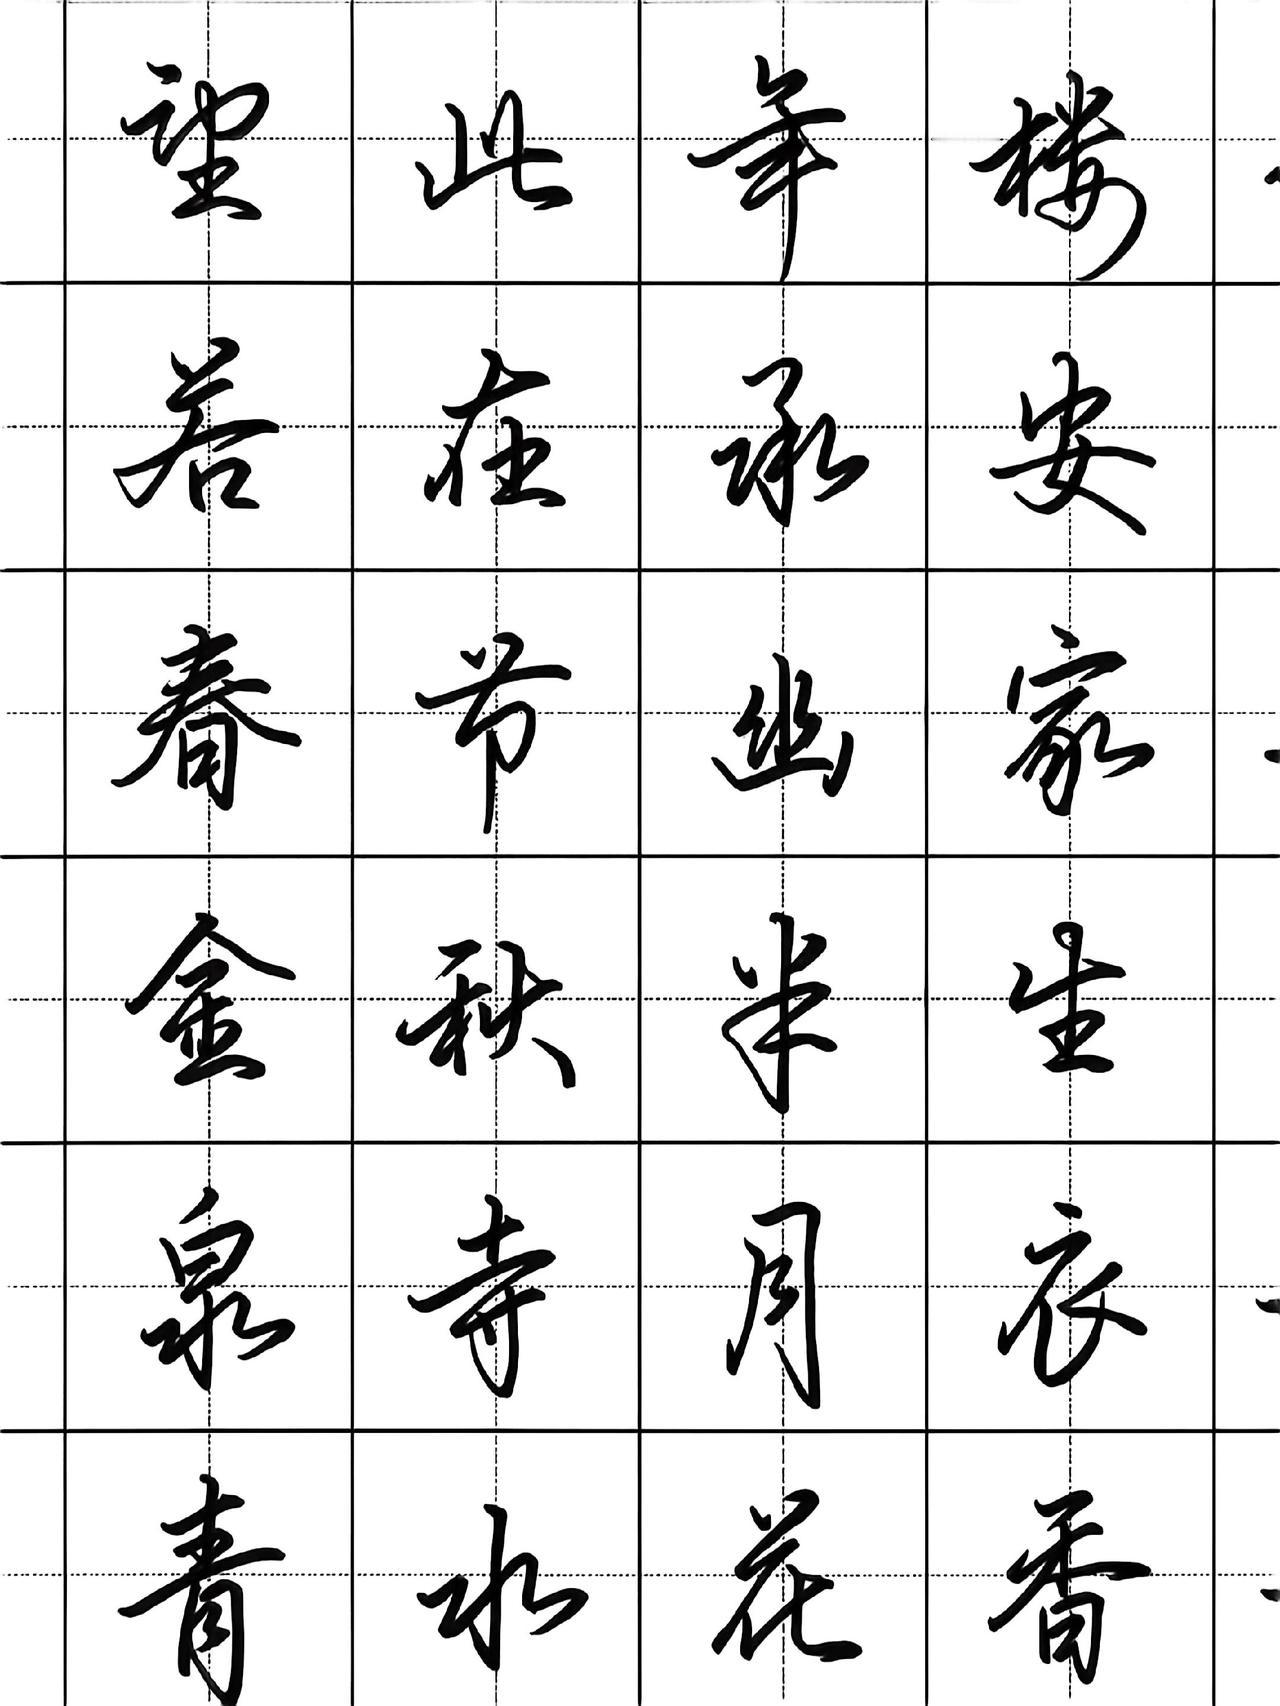 望此年楼
若在承安
春节幽家
金秋半生
泉寺月衣
青水花香